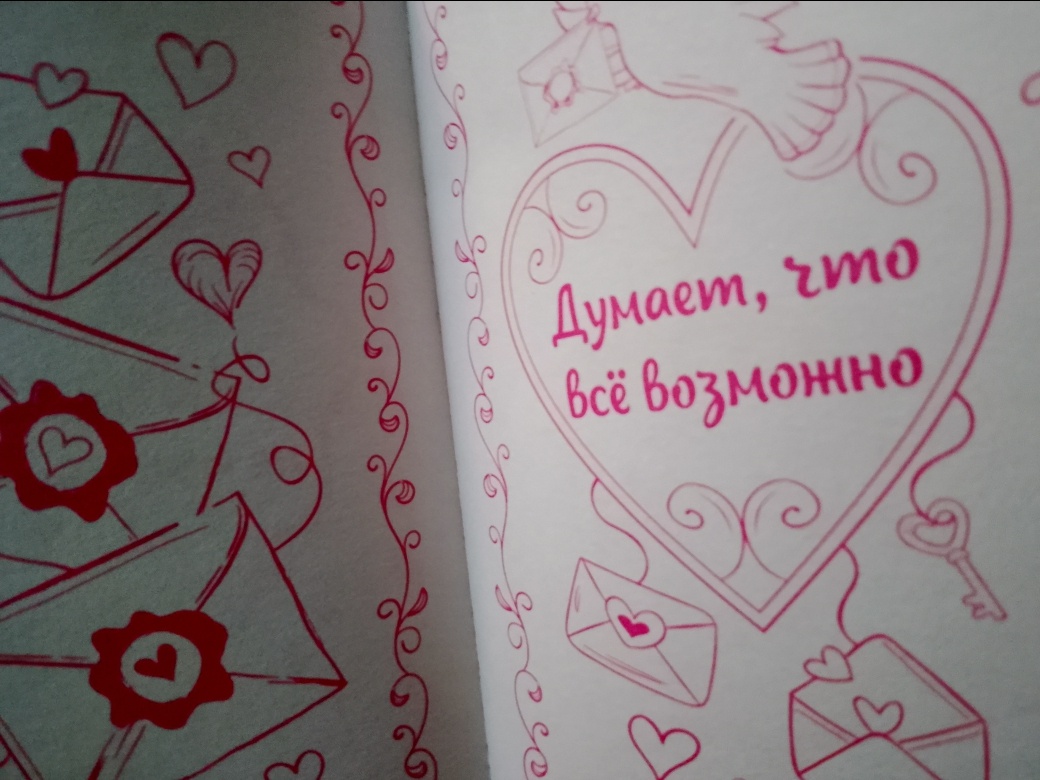 Думает, что
всё возможно